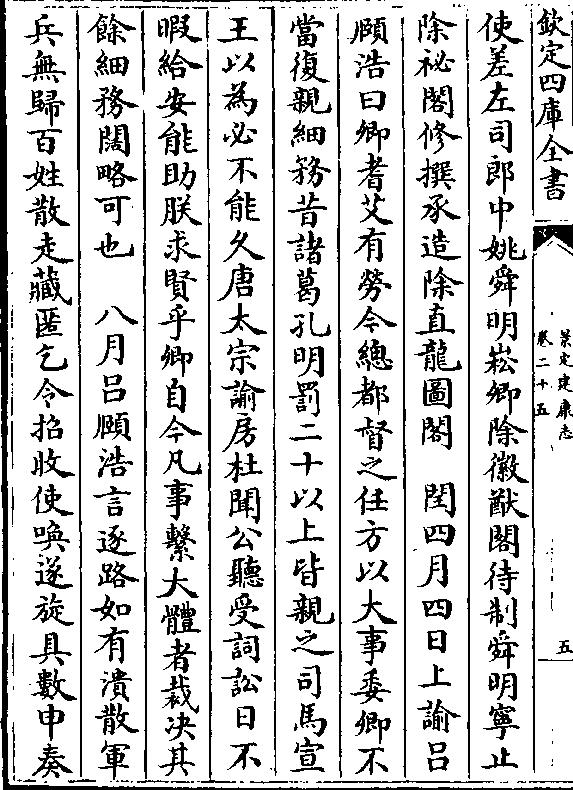 欽定四庫全書
景定建康志
卷二十五
五
使差左司郎中姚舜明崧卿除徽猷閣待制舜明寧止
除祕閣修撰承造除直龍圖閣　閏四月四日上諭吕
頤浩曰卿耆艾有勞今總都督之任方以大事委卿不
當復親細務昔諸葛孔明罰二十以上皆親之司馬宣
王以為必不能久唐太宗諭房杜聞公聽受詞訟日不
暇給安能助朕求賢乎卿自今凡事繫大體者裁决其
餘細務闊略可也　八月吕頤浩言逐路如有潰散軍
兵無歸百姓散走藏匿乞令招收使喚遂旋具數申奏